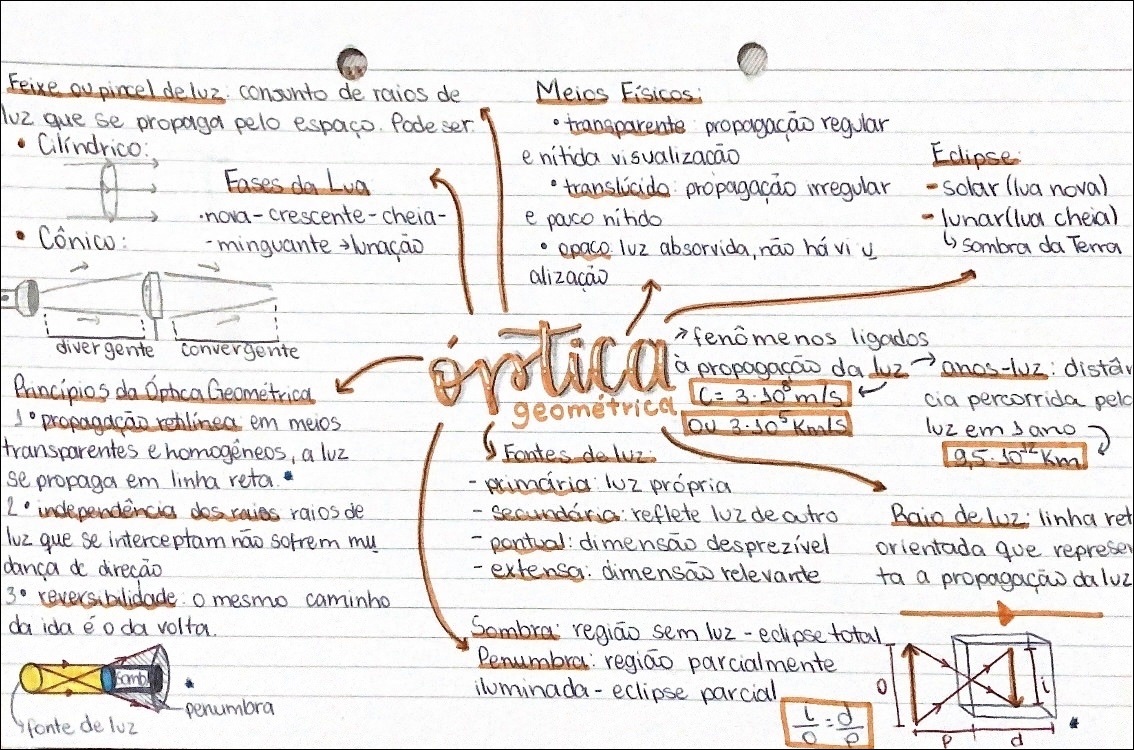 Feixe ou pincel de luz: conjunto de raios de
luz que se propaga pelo espaço. Pode ser:
• Cilíndrico:
• Cônico:
divergente convergente
Fases da Lua
·nova-crescente-cheia-
-minguante→lunação
Meios Físicos:
• transparente: propagação regular
e nítida visualização
• translúcido: propagação irregular
e pouco nítido
• opaco: luz absorvida, não há visu
alização
Eclipse:
- solar (lua nova)
- lunar (lua cheia)
↳ sombra da Terra
óptica
geométrica
↗ fenômenos ligados
à propagação da luz
C = 3·10⁸ m/s
ou 3·10⁵ Km/s
→ anos-luz: distân
cia percorrida pela
luz em 1 ano
9,5·10¹² Km
Princípios da Óptica Geométrica
1° propagação retilínea: em meios
transparentes e homogêneos, a luz
se propaga em linha reta. *
2° independência dos raios: raios de
luz que se interceptam não sofrem mu
dança de direção
3° reversibilidade: o mesmo caminho
da ida é o da volta.
Somb
*
penumbra
fonte de luz
Fontes de luz:
- primária: luz própria
- secundária: reflete luz de outro
- pontual: dimensão desprezível
- extensa: dimensão relevante
Raio de luz: linha ret
orientada que represen
ta a propagação da luz
Sombra: região sem luz - eclipse total
Penumbra: região parcialmente
iluminada - eclipse parcial
i/o = d/p
o
i
p d
*